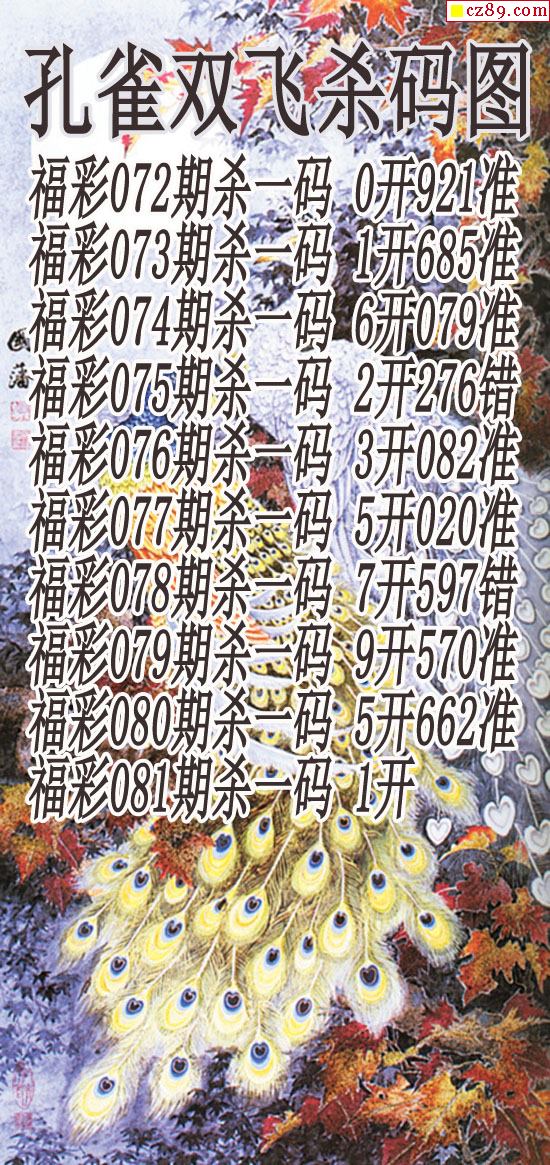 cz89.com
孔雀双飞杀码图
福彩072期杀一码 0开921准
福彩073期杀一码 1开685准
福彩074期杀一码 6开079准
福彩075期杀一码 2开276错
福彩076期杀一码 3开082准
福彩077期杀一码 5开020准
福彩078期杀一码 7开597错
福彩079期杀一码 9开570准
福彩080期杀一码 5开662准
福彩081期杀一码 1开